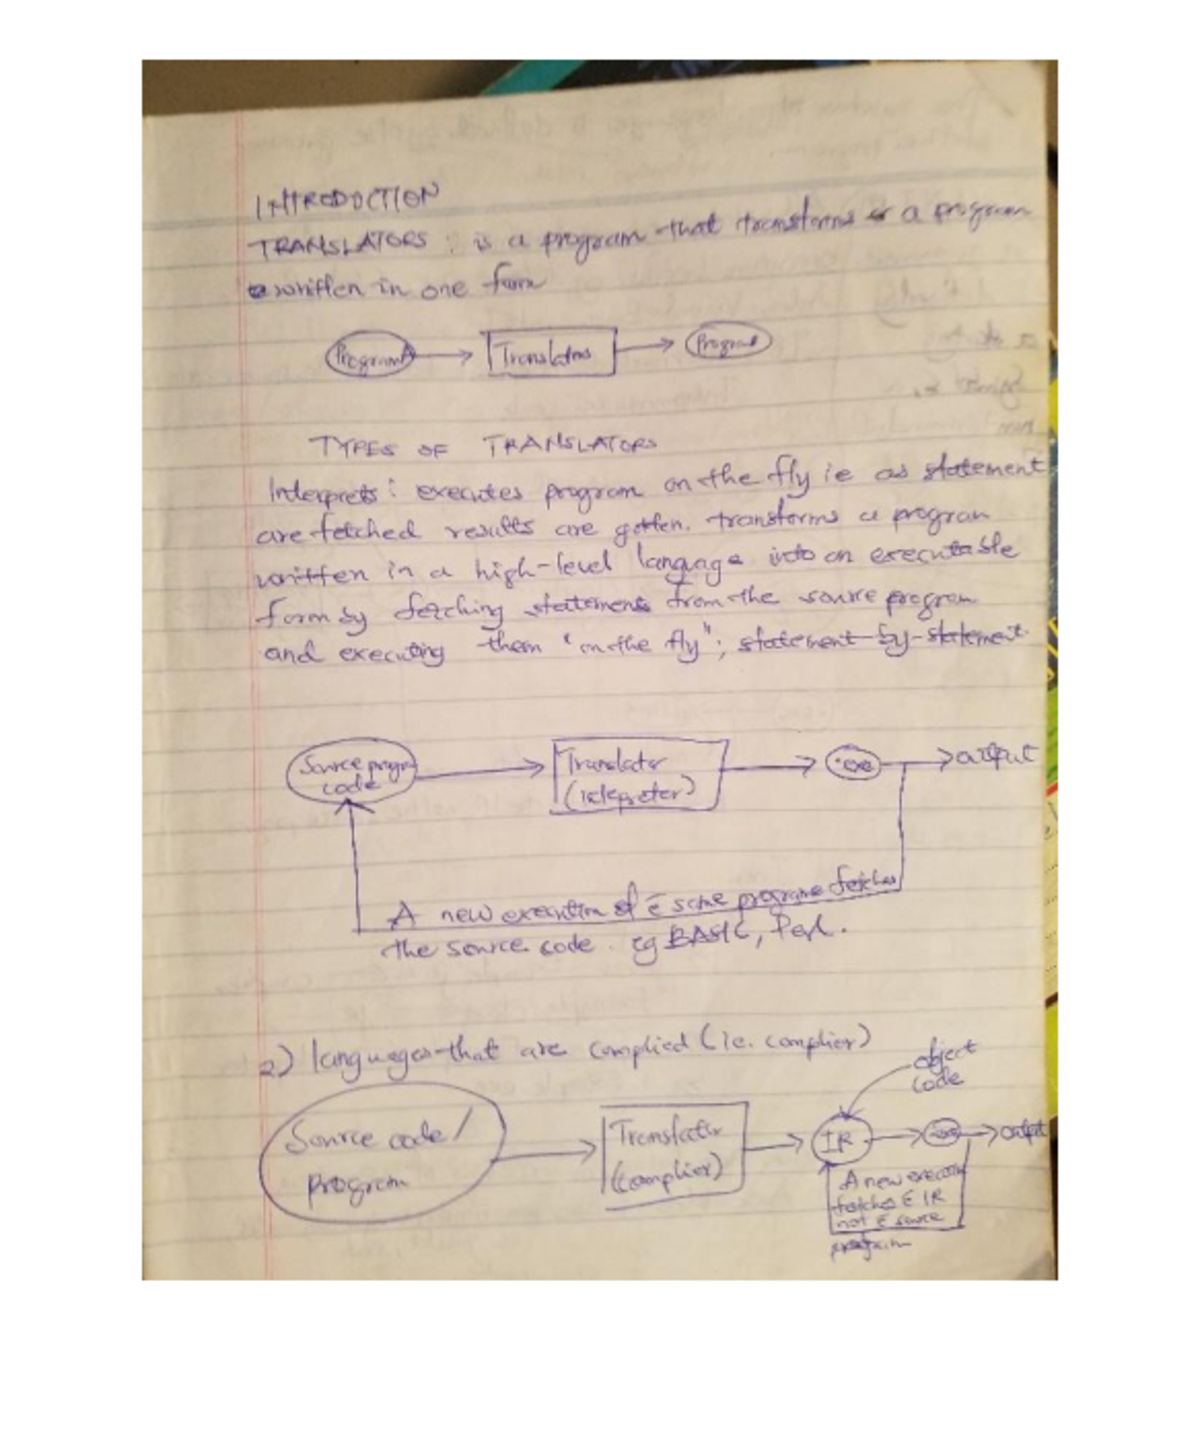 INTRODUCTION
TRANSLATORS : is a program that transforms a program
written in one form
Program Translators Program
TYPES OF TRANSLATORS
Interprets : executes program on the fly ie as statement
are fetched results are gotten. transforms a program
written in a high-level language into an executable
form by fetching statements from the source program
and executing them "on the fly"; statement-by-statement.
Source progr
code
Translator
(intepreter)
.exe
output
A new execution of ē same programe fetches
the source code. eg BASIC, Perl.
2) languages that are complied (ie. complier)
object
code
Source code/
program
Translator
(complier)
IR
.exe
output
A new execution
fetches ē IR
not ē source
program